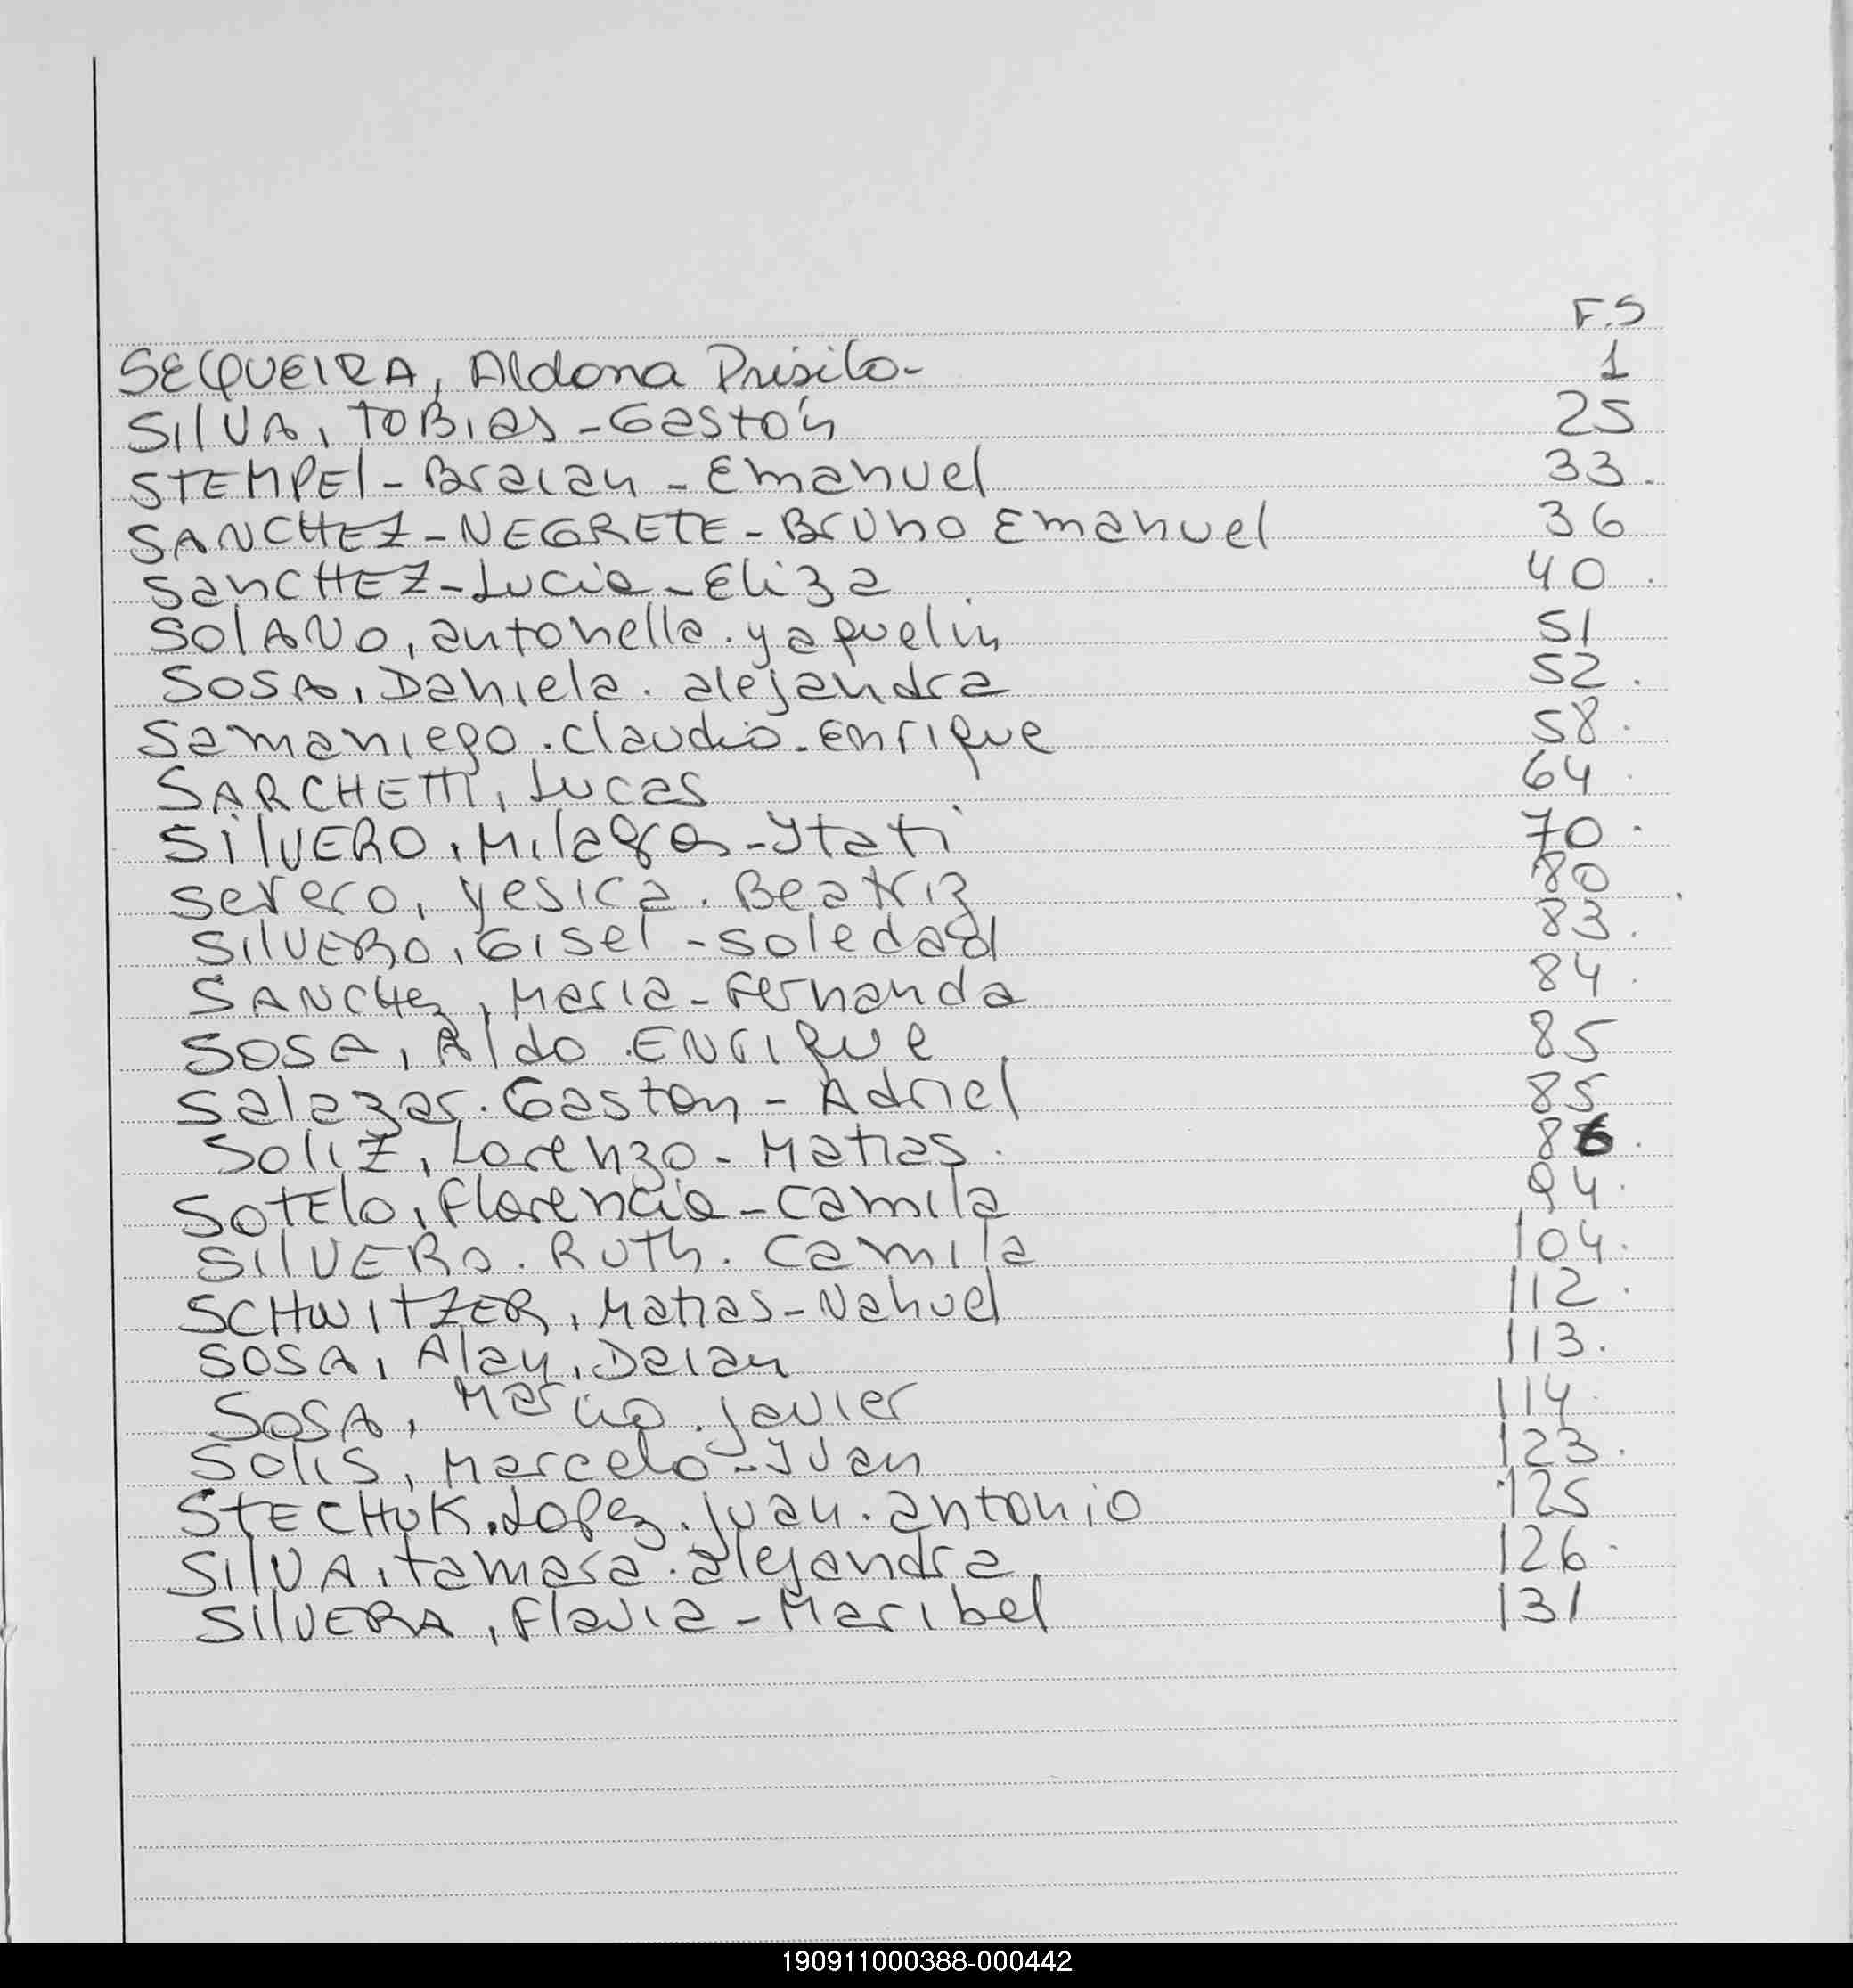 F.S
SEQUEIRA, Aldana Prisila- 1
SilVA, TOBias - Gastón 25
STEMPEl - Braian - Emanuel 33.
SANCHEZ - NEGRETE - Bruno Emanuel 36
SanCHEZ - Lucia - Eliza 40.
SolANO, antonella. yaquelin 51
SOSA, Daniela. alejandra 52.
Samaniego. claudio. Enrique 58.
SARCHETTI, Lucas 64.
SilVERO, Milagros - Ytati 70.
Severo, yesica. Beatriz 80
SilVERO, Gisel - Soledad 83.
SANCHez, Maria - Fernanda 84.
SOSA, Aldo ENrique 85
Salazar. Gaston - Adriel 85
SoliZ, Lorenzo - Matias. 86.
SOTElo, Florencia - Camila 94.
SilVERO. RUTh. Camila 104.
SCHWITZER, Matias - Nahuel 112.
SOSA, Alan, Daian 113.
SOSA, Marcio. javier 114.
Solis, Marcelo - Ivan 123.
STECHUK. Lopez. juan. antonio 125
SilVA, tamara. alejandra 126.
SilVERA, Flavia - Maribel 131
190911000388-000442